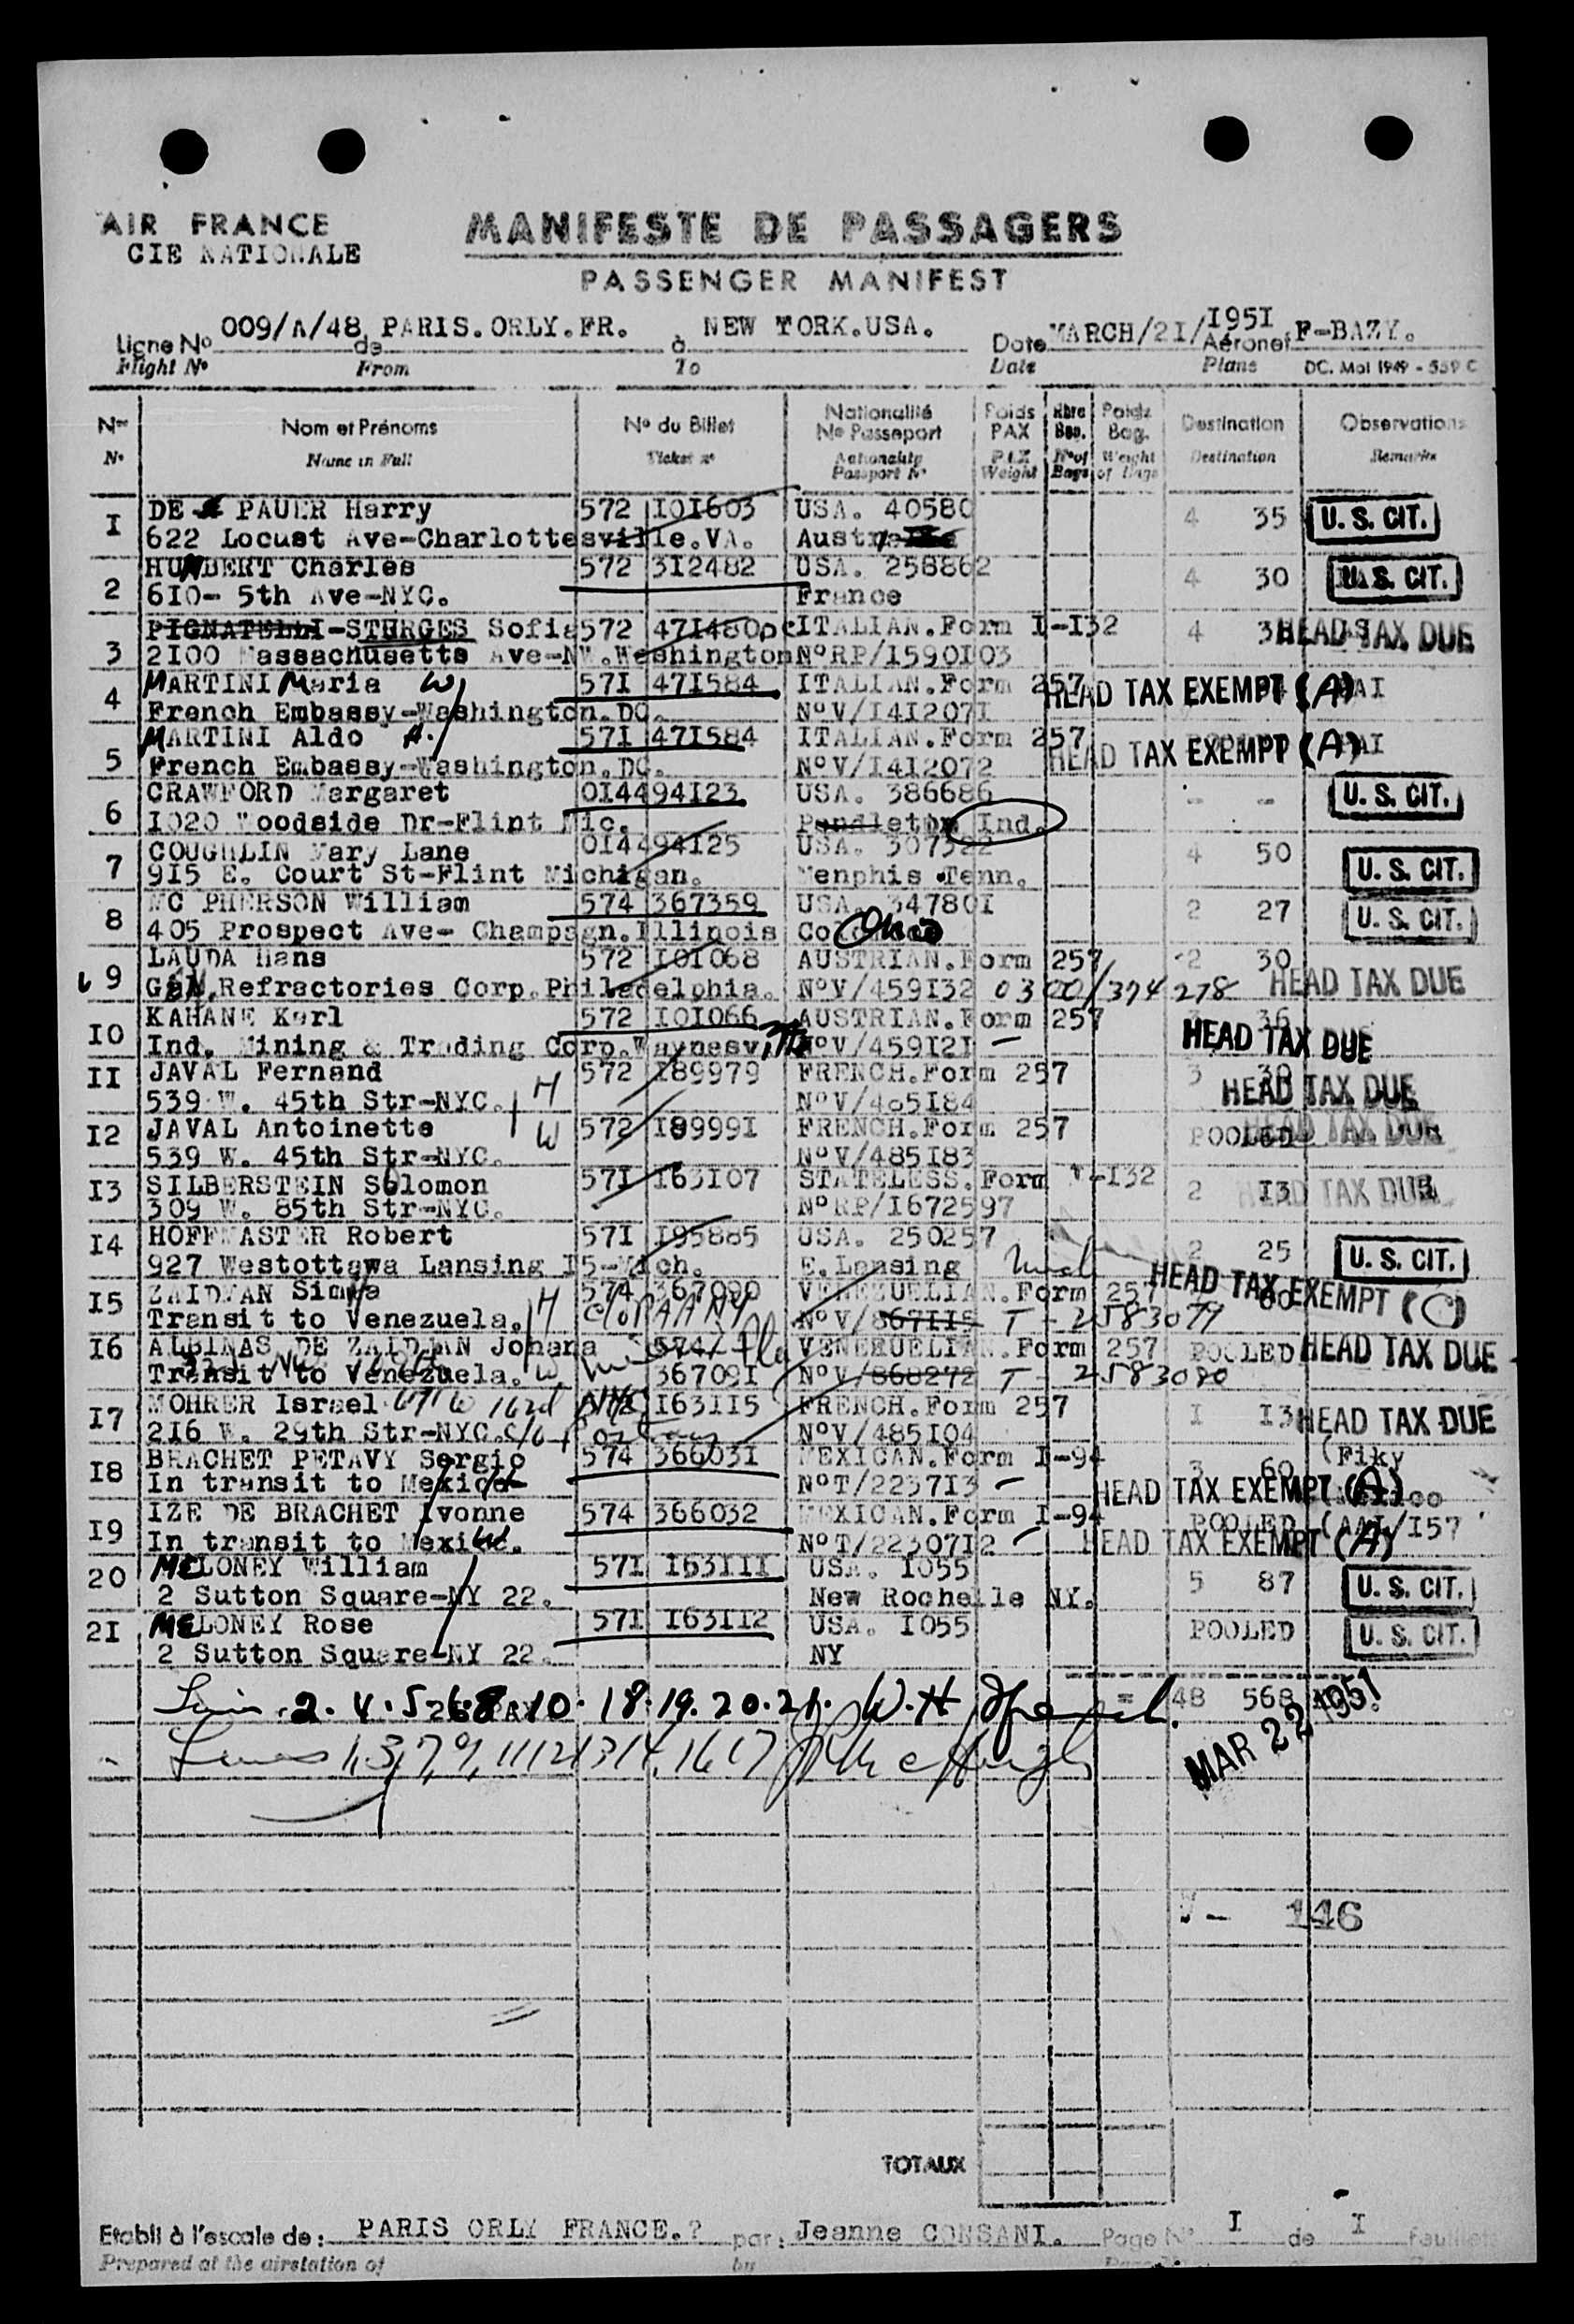 AIR FRANCE
CIE NATIONALE
MANIFESTE DE PASSAGERS
PASSENGER MANIFEST
Ligne No 009/A/48 de PARIS.ORLY.FR. à NEW YORK.USA. Date MARCH/21/1951 Aéronef F-BAZY.
Flight No From To Date Plane DC. Mol 1949 - 559 C
Nos Nom et Prénoms No du Billet Nationalité No Passeport Poids PAX Nbre Bag. Poids Bag. Destination Observations
No Name in Full Ticket no Nationality Passport No PAX Weight No of Bags Weight of Bags Destination Remarks
I DE PAUER Harry 572 I0I603 USA. 40580 4 35 U.S. CIT.
622 Locust Ave-Charlottesville.VA.
2 HUMBERT Charles 572 3I2482 USA. 258862 4 30 U.S. CIT.
6I0- 5th Ave-NYC. France
3 PIGNATELLI-STURGES Sofia 572 47I480 ITALIAN.Form I-I32 4 HEAD TAX DUE
2I00 Massachusetts Ave-NW.Washington NoRP/I590I03
4 MARTINI Maria W 57I 47I584 ITALIAN.Form 257 HEAD TAX EXEMPT (A)
French Embassy-Washington.DC. NoV/I4I207I
5 MARTINI Aldo 57I 47I584 ITALIAN.Form 257 HEAD TAX EXEMPT (A)
French Embassy-Washington.DC. NoV/I4I2072
6 CRAWFORD Margaret 0I4494I23 USA. 386686 - - U.S. CIT.
I020 Woodside Dr-Flint Mic. Pendleton Ind.
7 COUGHLIN Mary Lane 0I4494I25 USA. 307322 4 50 U.S. CIT.
9I5 E. Court St-Flint Michigan. Menphis Tenn.
8 MC PHERSON William 574 367359 USA. 34780I 2 27 U.S. CIT.
405 Prospect Ave- Champagn.Illinois Ohio
9 LAUDA Hans 572 I0I068 AUSTRIAN.Form 257 2 30 HEAD TAX DUE
Gen.Refractories Corp.Philadelphia. NoV/459I32 0300/374278
I0 KAHANE Karl 572 I0I066 AUSTRIAN.Form 257 36 HEAD TAX DUE
Ind. Mining & Trading Corp.Waynesville NoV/459I2I -
II JAVAL Fernand 572 I89979 FRENCH.Form 257 3 30 HEAD TAX DUE
539 W. 45th Str-NYC. H NoV/485I84
I2 JAVAL Antoinette W 572 I8999I FRENCH.Form 257 POOLED HEAD TAX DUE
539 W. 45th Str-NYC. NoV/485I83
I3 SILBERSTEIN Solomon 57I I63I07 STATELESS.Form I-I32 2 I3 HEAD TAX DUE
309 W. 85th Str-NYC. NoRP/I672597
I4 HOFFMASTER Robert 57I I95885 USA. 250257 2 25 U.S. CIT.
927 Westottawa Lansing I5-Mich. E.Lansing Mich
I5 ZAIDMAN Simya 574 367090 VENEZUELIAN.Form 257 60 HEAD TAX EXEMPT (C)
Transit to Venezuela. H NoV/867II5 T - 2583079
I6 ALBINAS DE ZAIDMAN Johana 574 VENEZUELIAN.Form 257 POOLED HEAD TAX DUE
Transit to Venezuela. W 36709I NoV/868272 T - 2583080
I7 MOHRER Israel I63II5 FRENCH.Form 257 I I3 HEAD TAX DUE
2I6 W. 29th Str-NYC. NoV/485I04
I8 BRACHET PETAVY Sergio 574 36603I MEXICAN.Form I-94 3 60 HEAD TAX EXEMPT (A)
In transit to Mexico NoT/2237I3 -
I9 IZE DE BRACHET Ivonne 574 366032 MEXICAN.Form I-94 POOLED HEAD TAX EXEMPT (A)
In transit to Mexico. NoT/22307I2 -
20 MELONEY William 57I I63III USA. I055 5 87 U.S. CIT.
2 Sutton Square-NY 22. New Rochelle NY.
2I MELONEY Rose 57I I63II2 USA. I055 POOLED U.S. CIT.
2 Sutton Square-NY 22. NY
2.4.5.6.8.10.18.19.20.21. W.H = 48 568
MAR 22 1951
Lines 1,3,7,9,11 12 13 14,16 17
146
TOTAUX
Etabli à l'escale de: PARIS ORLY FRANCE.? par: Jeanne CONSANI. Page No I de I feuillets
Prepared at the airstation of by